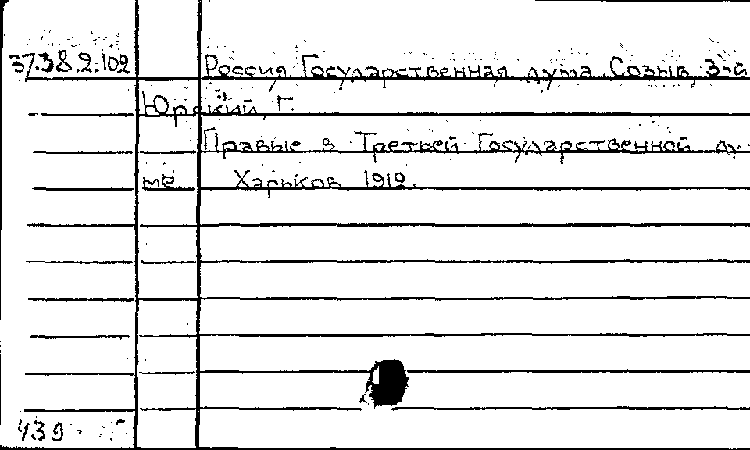 37.3.8.2:102 Россия Государственная дума Созыв 3-й
Юрский, Г.
Правые в Третьей Государственной ду-
ме Харьков 1912.
439